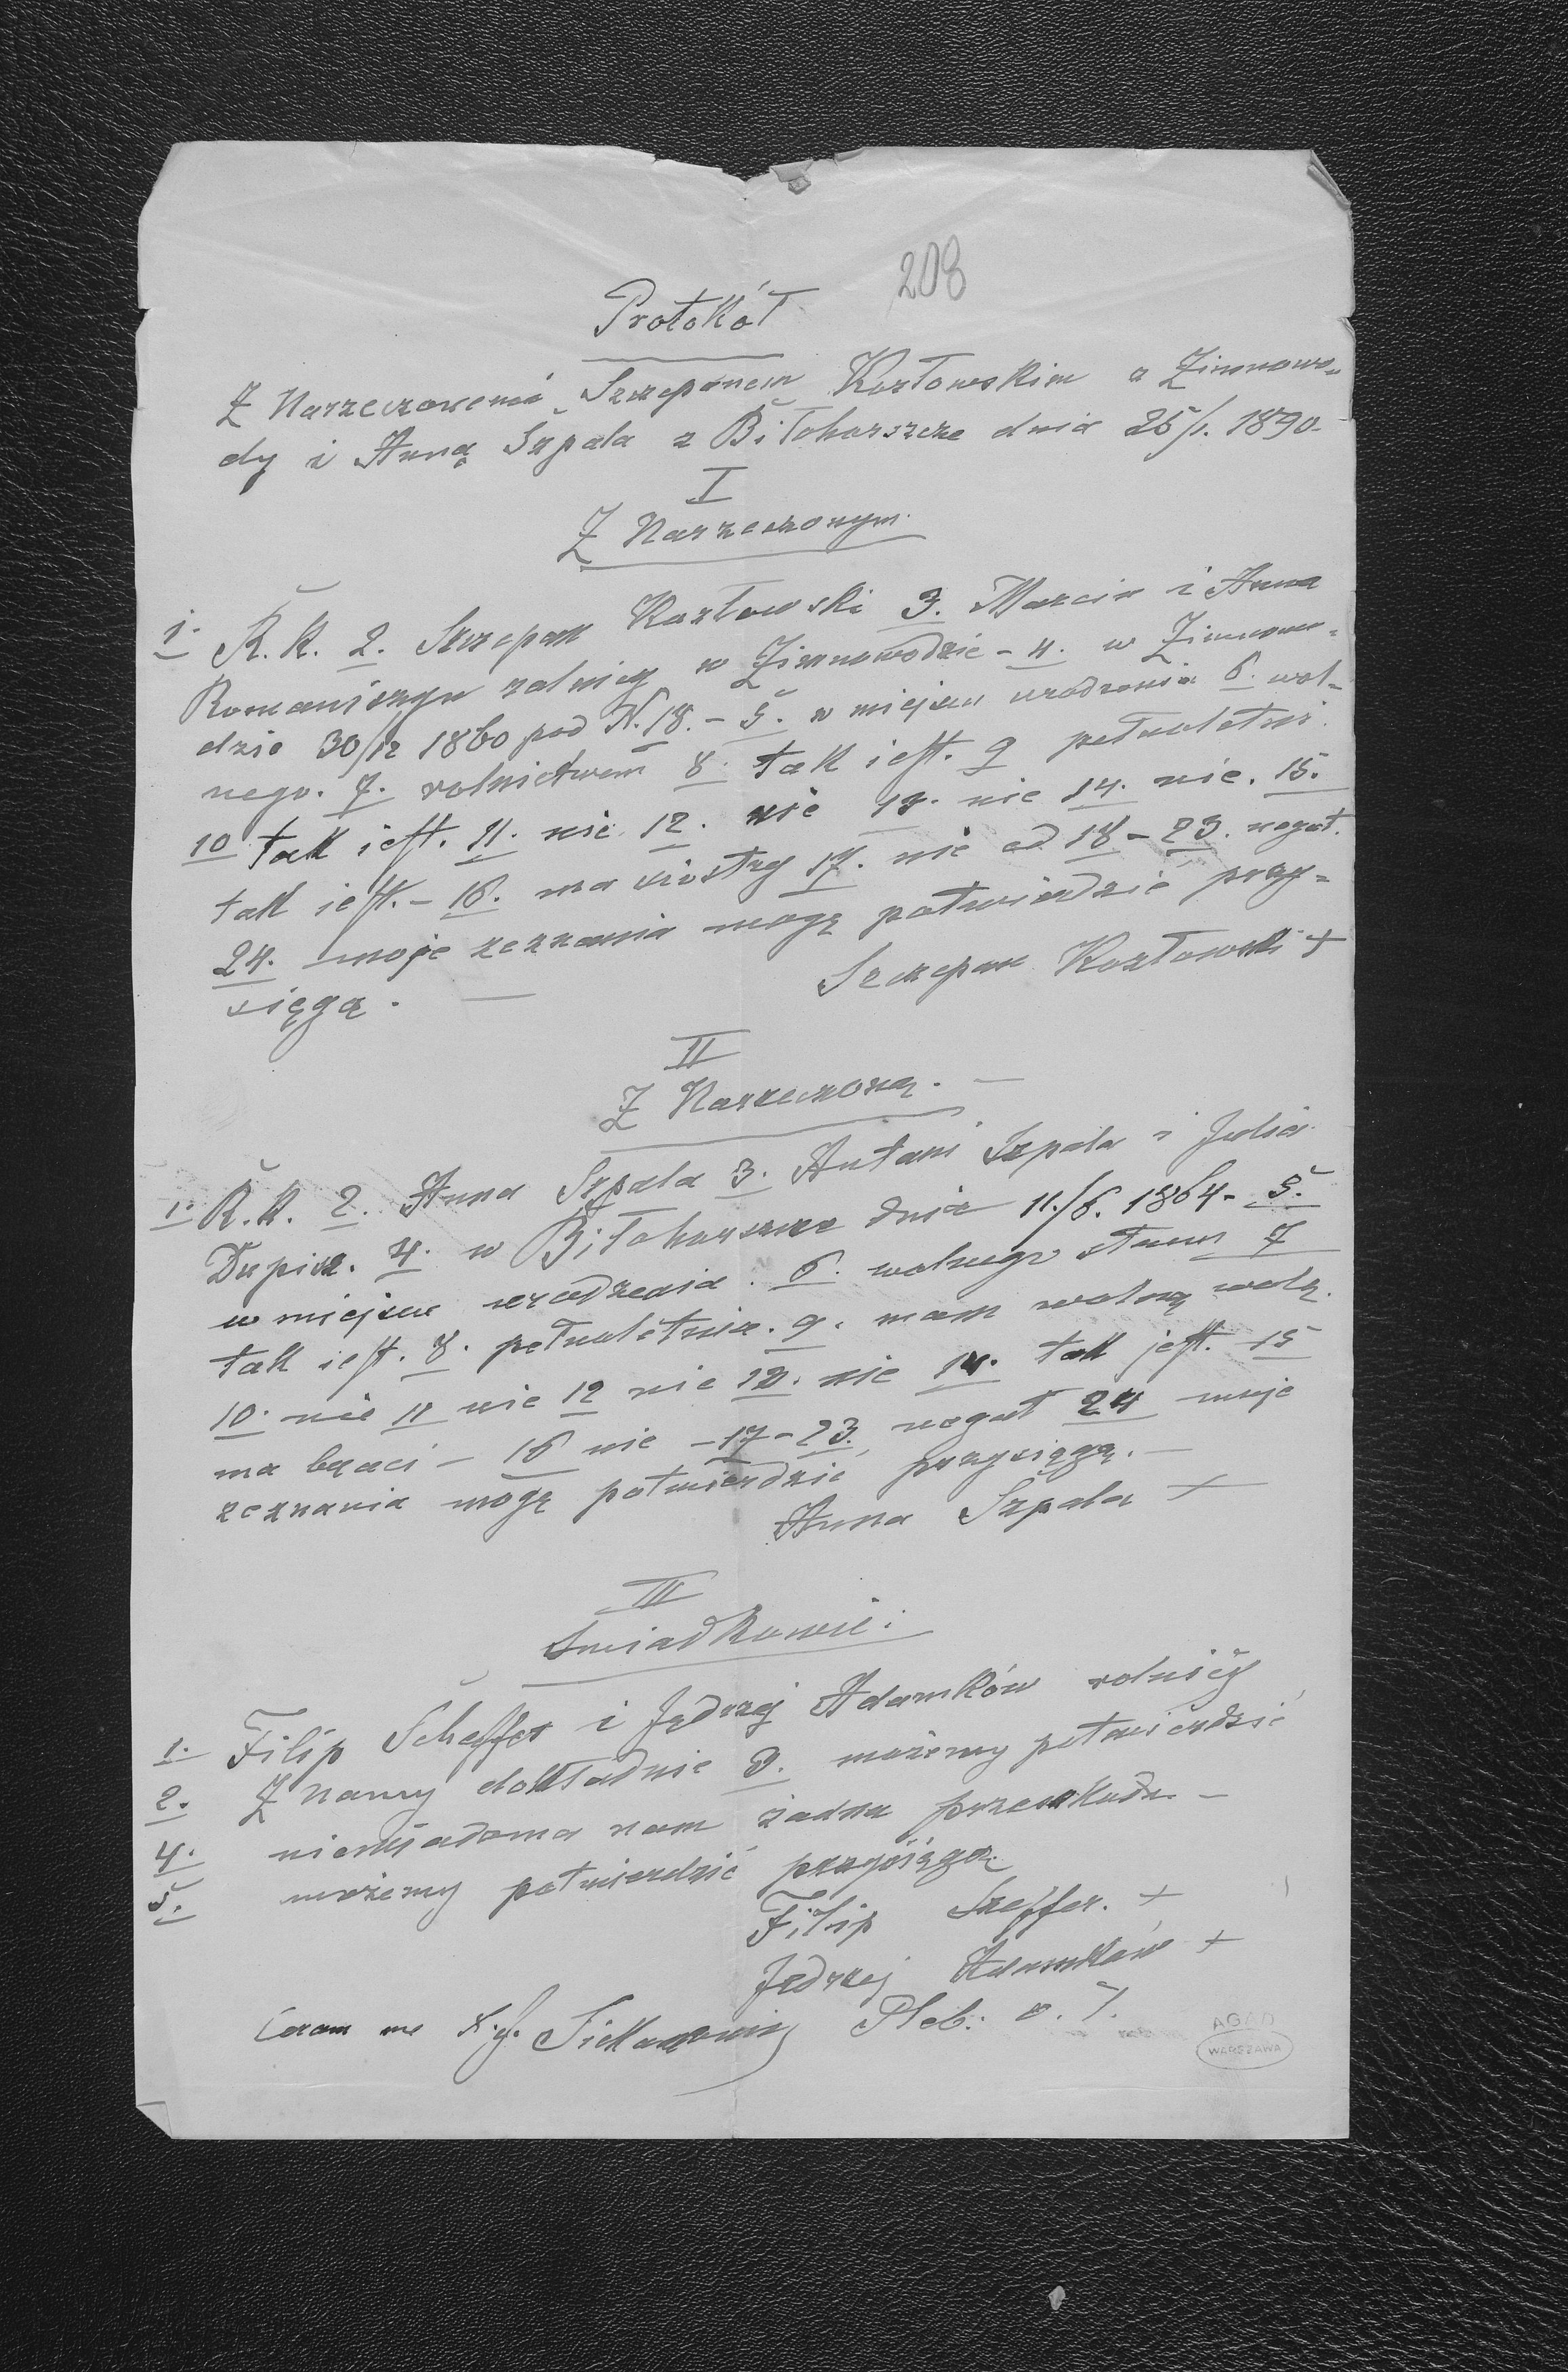 208
Protokół
Z Narzeczonemi Szczepanem Kozłowskim z Zimnowo=
dy i Anną Szpala z Biłohorszcze dnia 25/1. 1890.
I
Z Narzeczonym.
1. R. K. 2. Szczepan Kozłowski 3. Marcin i Anna
Romaniszyn rolnicy w Zimnowodzie - 4. w Zimnowo=
dzie 30/12 1860 pod N. 18. - 5. w miejscu urodzenia 6. wol=
nego. 7. rolnictwem 8. tak jest. 9 pełnoletni.
10 tak jest. 11. nie. 12. nie 13. nie 14. nie. 15.
tak jest. - 16. ma siostry 17. nie od 18 - 23. negat.
24. moje zeznania mogę potwierdzić przy=
sięgą. —
Szczepan Kozłowski +
II
Z Narzeczoną. —
1. R. K. 2. Anna Szpala 3. Antani Szpala i Julia
Dupisz. 4. w Biłohorszcze dnia 11./6. 1864 - 5.
w miejscu urodzenia. 6. wolnego stanu 7
tak jest. 8. pełnoletnia. 9. mam wolną wolę.
10. nie 11 nie 12 nie 13. nie 14. tak jest. 15
ma braci - 16 nie - 17 - 23. negat 24 moje
zeznania mogę potwierdzić przysięgą. —
Anna Szpala +
III
Swiadkowie:
1. Filip Scheffer i Jędrzej Adamków rolnicy
2. Znamy dokładnie 3. możemy potwierdzić
4. niewiadoma nam żadna przeszkoda -
5. możemy potwierdzić przysięgą.
Filip Szeffer. +
Jędrzej Adamków +
Coram me Pleb:
AGAD
WARSZAWA